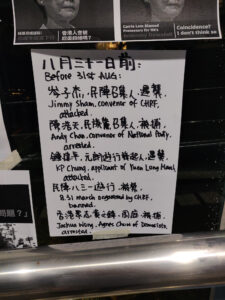 八月三十一日前:
Before 31st AUG:
岑子杰,民陣召集人,遇襲.
Jimmy Sham, convenor of CHRF,
attacked.
陳浩天,民族黨召集人,被捕.
Andy Chan, convenor of National Party,
arrested.
鍾健平,元朗遊行發起人,遇襲.
KP Chung, applicant of Yuen Long March,
attacked.
民陣八三一遊行,被禁.
8.31 march organised by CHRF,
banned.
香港眾志黃之鋒,周庭,被捕.
Joshua Wong, Agnes Chow of Demosisto,
arrested.
Carrie Lam Blamed
Protesters for NK's
Coincidence?
I don't think so